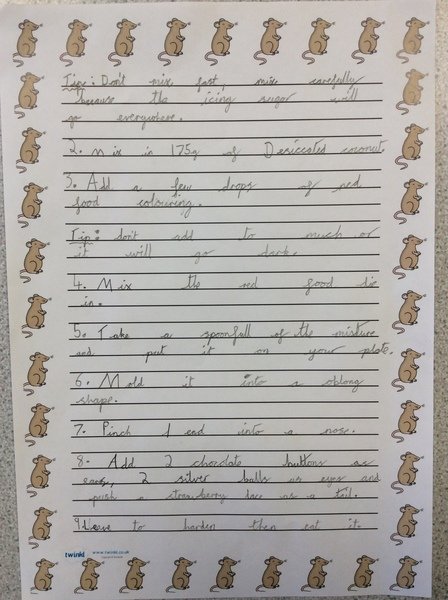 Tip: Don't mix fast, mix carefully
because the icing sugar will
go everywhere.
2. Mix in 175g of Desiccated coconut.
3. Add a few drops of red
food colouring.
Tip: don't add to much or
it will go dark.
4. Mix the red food die
in.
5. Take a spoonfull of the mixture
and put it on your plate.
6. Mold it into a oblong
shape.
7. Pinch 1 end into a nose.
8. Add 2 chocolate buttons as
ears, 2 silver balls as eyes and
push a strawberry lace as a tail.
9. Leave to harden then eat it.
twinkl www.twinkl.co.uk